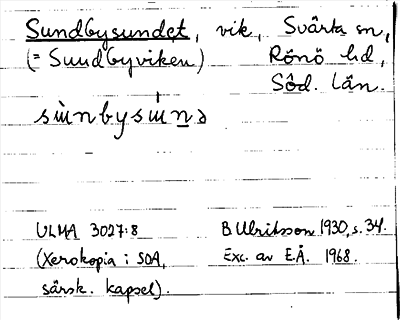 Sundbysundet, vik, Svärta sn,
(= Sundbyviken) Rönö hd,
Söd. Län.
sɯ̀nbysɯ́nə
ULMA 3027:8 B Ulriksson 1930, s. 34.
(Xerokopia i SOA, Exc. av E.Å. 1968.
särsk. kapsel).